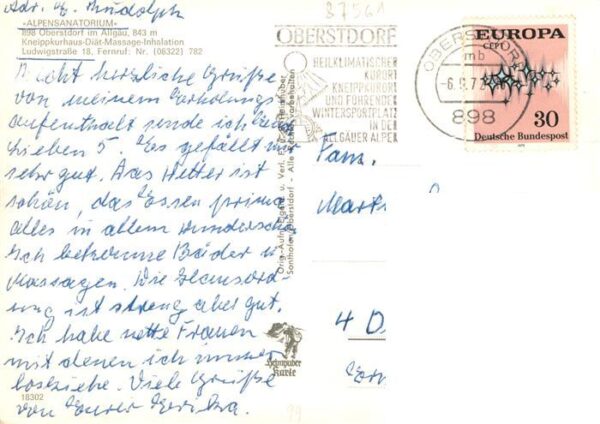 Adr. b. Rudolph
»ALPENSANATORIUM«
898 Oberstdorf im Allgäu, 843 m
Kneippkurhaus-Diät-Massage-Inhalation
Ludwigstraße 18, Fernruf: Nr. (08322) 782
Recht herzliche Grüße
von meinem Erholungs
aufenthalt sende ich Euch
lieben 5. Es gefällt mir
sehr gut. Das Wetter ist
schön, das Essen prima
alles in allem wunderschön
Ich bekomme Bäder u
Massagen. Die Hausord-
nung ist streng aber gut.
Ich habe nette Frauen
mit denen ich immer
losziehe. Viele Grüße
von Eurer Erika.
18302
Orig.-Aufn. u. Verl.
Sonthofen/Oberstdorf - Alle Rechte vorbehalten
Schöning
Karte
99
87561
OBERSTDORF
HEILKLIMATISCHER
KURORT
KNEIPPKURORT
UND FÜHRENDER
WINTERSPORTPLATZ
IN DEN
ALLGÄUER ALPEN
OBERSTDORF
mb
-6.9.72
898
EUROPA
CEPT
30
Deutsche Bundespost
Fam.
4 D